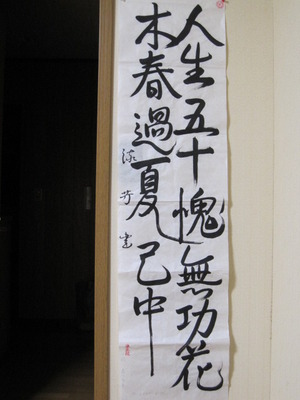 人生五十愧無功花
木春過夏已中